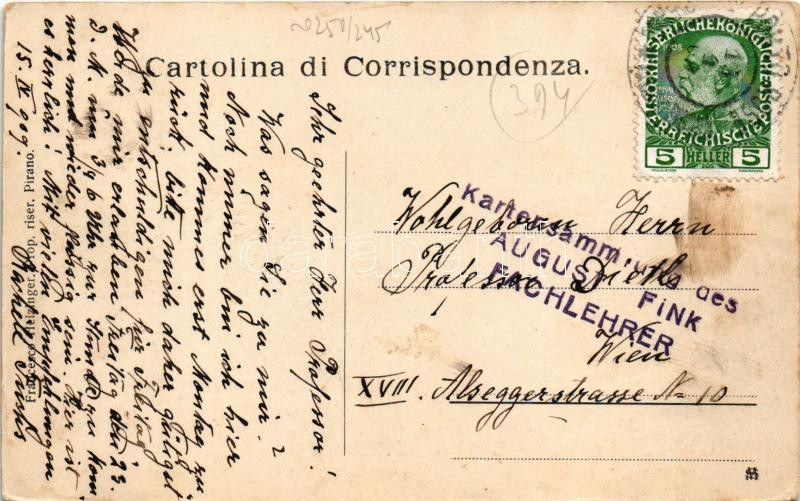 ~0250/245
Cartolina di Corrispondenza.
394
1908
ÖSTERREICHISCHE POST
5 HELLER 5
Ihr geehrter Herr Professor!
Was sagen Sie zu mir?
Noch immer bin ich hier
und komme erst Montag zu
rück, bitte mich daher gütigst
zu entschuldigen für Freitag
Werde mir erlauben Freitag den 23.
d. M. um 3/4 6 Uhr zur Stunde zu kom
men und wieder fleissig sein. Hier ist
es herrlich! Mit vielen Empfehlungen
15 IV 909.
Francesco prop. riser. Pirano.
Wohlgeboren Herrn
Professor
Wien
XVIII. Alseggerstrasse No 10
Kartensammlung des
AUGUST FINK
FACHLEHRER
darabanth